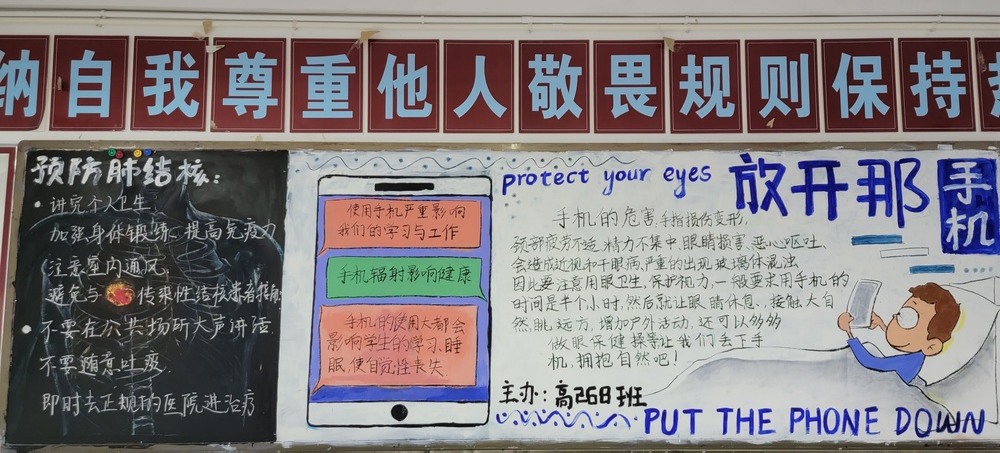 纳自我尊重他人敬畏规则保持
预防肺结核:
• 讲究个人卫生
加强身体锻炼 提高免疫力
注意室内通风
避免与 传染性结核患者接触
不要在公共场所大声讲话
不要随意吐痰
即时去正规的医院进治疗
使用手机严重影响
我们的学习与工作
手机辐射影响健康
手机的使用大都会
影响学生的学习、睡
眠,使自觉性丧失
protect your eyes
放开那
手机
手机的危害,手指损伤变形,
颈部疲劳不适,精力不集中,眼睛损害,恶心呕吐,
会造成近视和干眼病,严重的出现玻璃体混浊
因此要注意用眼卫生,保护视力,一般要求用手机的
时间是半个小时,然后就让眼睛休息,接触大自
然,眺远方,增加户外活动,还可以多多
做眼保健操等让我们丢下手
机,拥抱自然吧!
主办:高268班
PUT THE PHONE DOWN